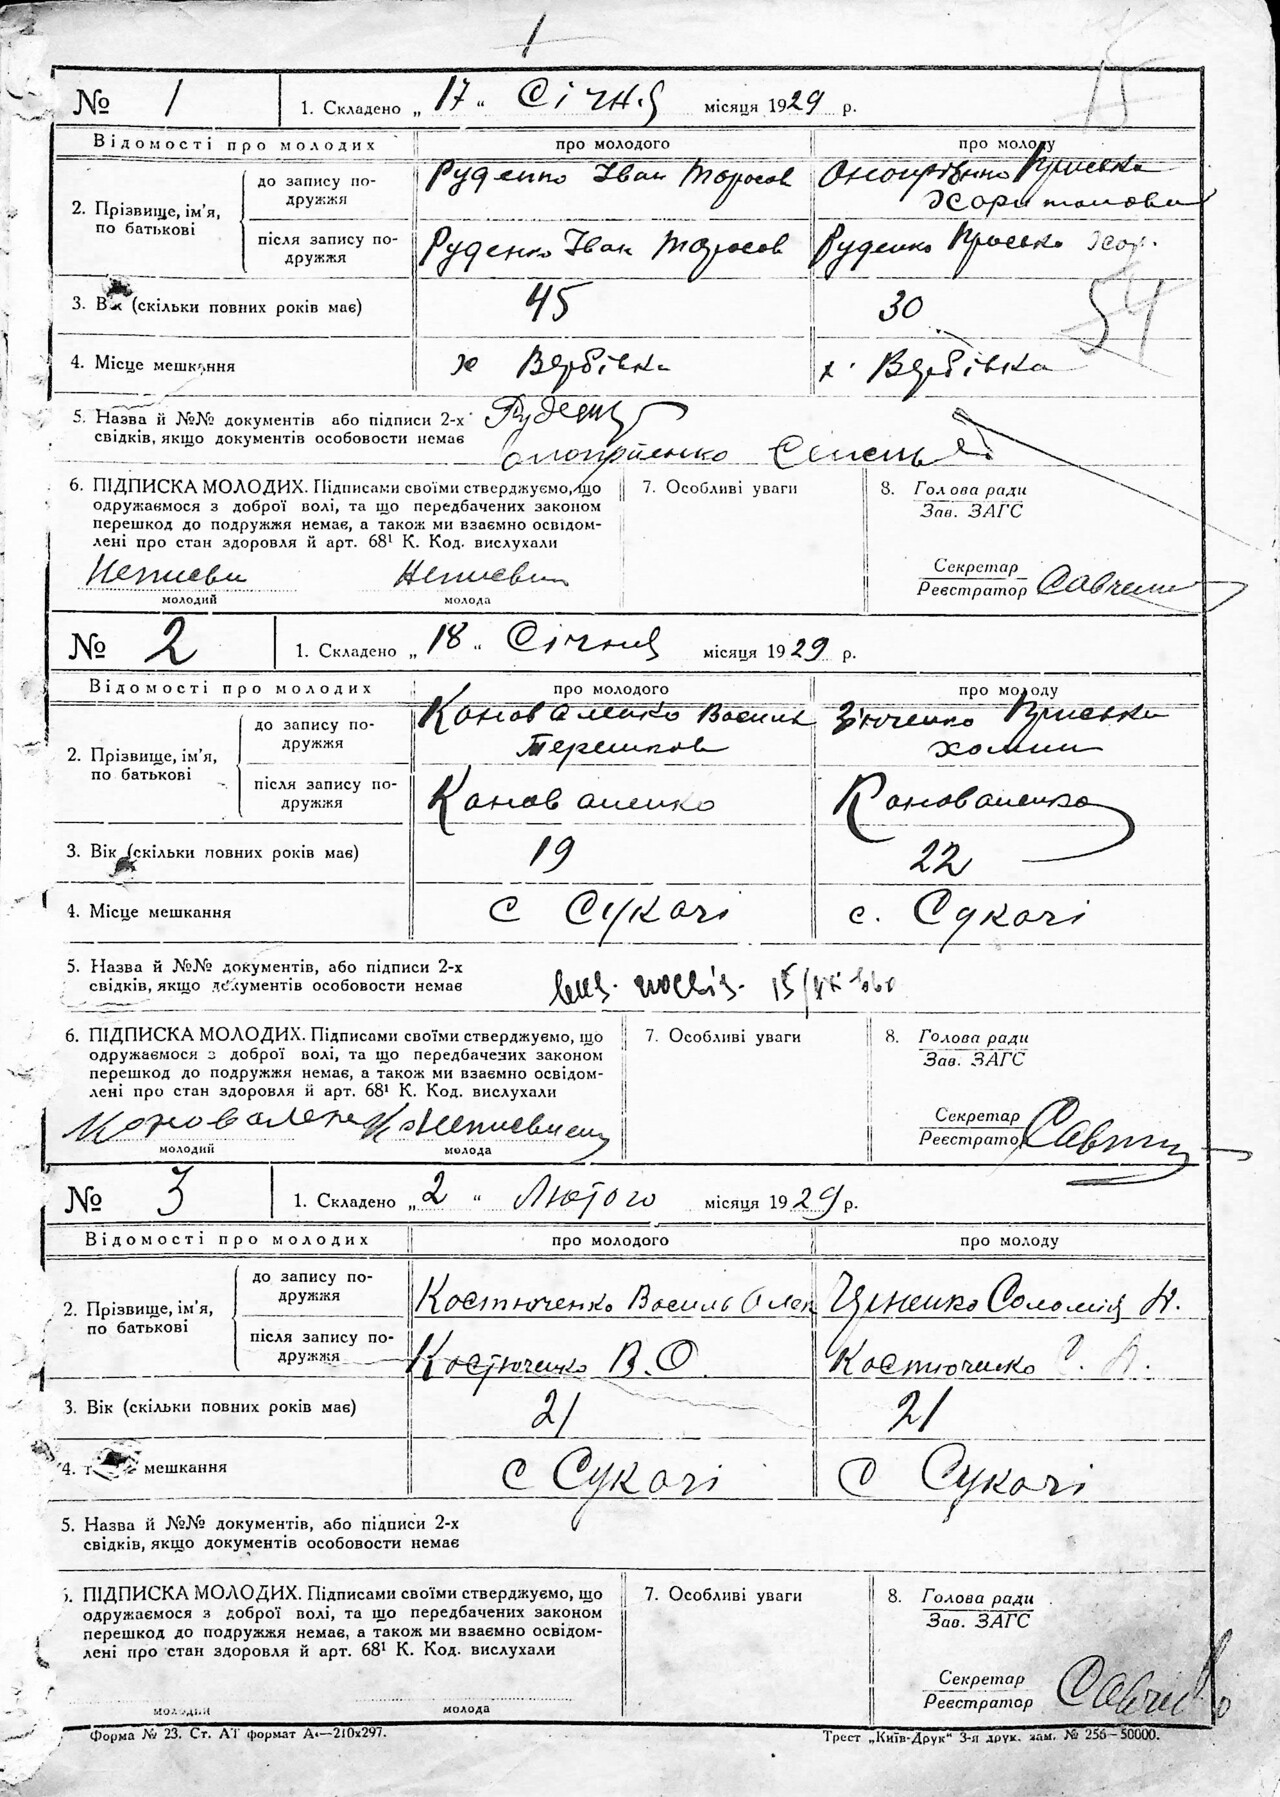 1
15
№ 1
1. Складено „ 17 “ Січня місяця 1929 р.
Відомості про молодих
про молодого
про молоду
2. Прізвище, ім’я, по батькові
до запису по-
дружжя
Руденко Іван Тарасов
Онопрієнко Приська
Харитонова
після запису по-
дружжя
Руденко Іван Тарасов
Руденко Приська Хар.
3. Вік (скільки повних років має)
45
30
54
4. Місце мешкання
х Вербівка
х. Вербівка
5. Назва й №№ документів або підписи 2-х
свідків, якщо документів особовости немає
Руденко
Онопрієнко
6. ПІДПИСКА МОЛОДИХ. Підписами своїми стверджуємо, що
одружаємося з доброї волі, та що передбачених законом
перешкод до подружжя немає, а також ми взаємно освідом-
лені про стан здоровля й арт. 68¹ К. Код. вислухали
7. Особливі уваги
8. Голова ради
Зав. ЗАГС
Секретар
Реєстратор
Савченко
молодий
молода
№ 2
1. Складено „ 18 “ Січня місяця 1929 р.
Відомості про молодих
про молодого
про молоду
2. Прізвище, ім’я,
по батькові
до запису по-
дружжя
Коноваленко Василь
Терешков
Зюченко Приська
Хомин
після запису по-
дружжя
Коноваленко
Коноваленко
3. Вік (скільки повних років має)
19
22
4. Місце мешкання
с Сукачі
с. Сукачі
5. Назва й №№ документів, або підписи 2-х
свідків, якщо документів особовости немає
6. ПІДПИСКА МОЛОДИХ. Підписами своїми стверджуємо, що
одружаємося з доброї волі, та що передбачених законом
перешкод до подружжя немає, а також ми взаємно освідом-
лені про стан здоровля й арт. 68¹ К. Код. вислухали
Коноваленко
молодий
молода
7. Особливі уваги
8. Голова ради
Зав. ЗАГС
Секретар
Реєстратор
№ 3
1. Складено „ 2 “ Лютого місяця 1929 р.
Відомості про молодих
про молодого
про молоду
2. Прізвище, ім’я,
по батькові
до запису по-
дружжя
Костюченко Василь Олек
Соломія Н.
після запису по-
дружжя
Костюченко В. О.
Костюченко С. Н.
3. Вік (скільки повних років має)
21
21
4. мешкання
с Сукачі
с Сукачі
5. Назва й №№ документів, або підписи 2-х
свідків, якщо документів особовости немає
ПІДПИСКА МОЛОДИХ. Підписами своїми стверджуємо, що
одружаємося з доброї волі, та що передбачених законом
перешкод до подружжя немає, а також ми взаємно освідом-
лені про стан здоровля й арт. 68¹ К. Код. вислухали
молодий
молода
7. Особливі уваги
8. Голова ради
Зав. ЗАГС
Секретар
Реєстратор
Савченко
Форма № 23. Ст. АТ формат А₄—210х297.
Трест „Київ-Друк“ 3-я друк. зам. № 256—50000.